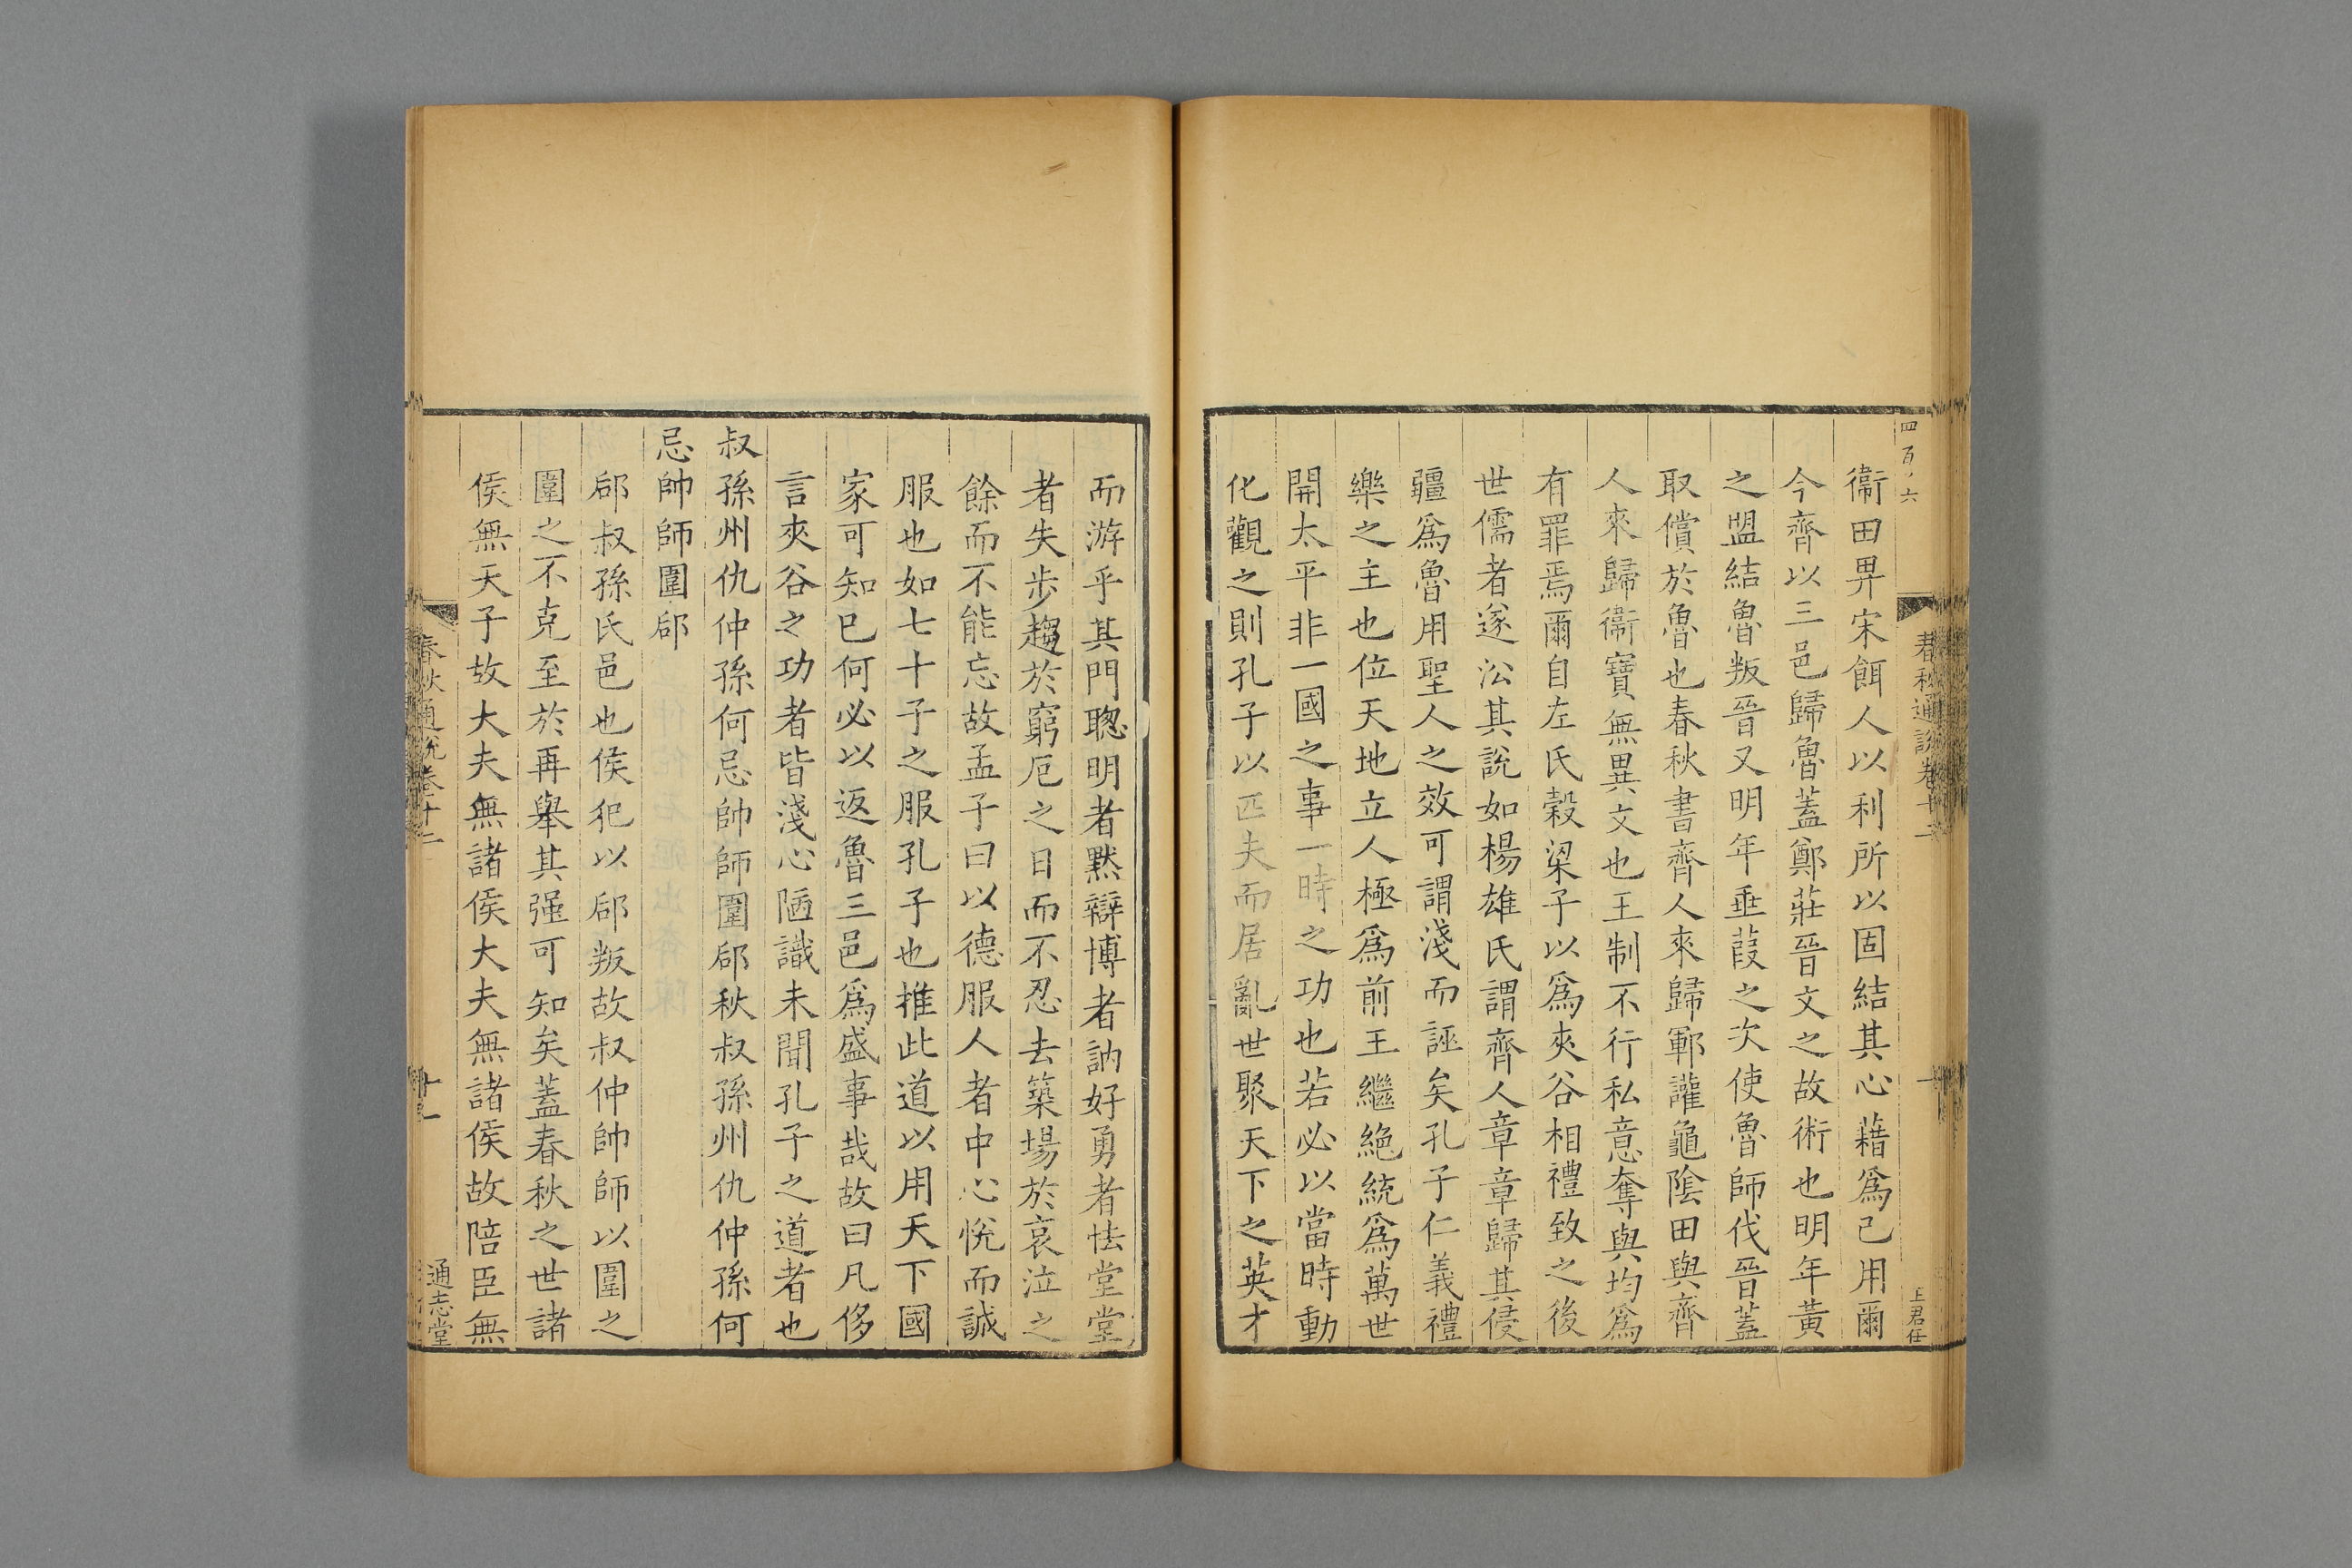 衞田畀宋餌人以利所以固結其心藉爲己用爾
今齊以三邑歸魯蓋鄭莊晉文之故術也明年黃
之盟結魯叛晉又明年垂葭之次使魯師伐晉蓋
取償於魯也春秋書齊人來歸鄆讙龜陰田與齊
人來歸衞寶無異文也王制不行私意奪與均爲
有罪焉爾自左氏穀梁子以爲夾谷相禮致之後
世儒者遂㳂其說如楊雄氏謂齊人章章歸其侵
疆爲魯用聖人之效可謂淺而誣矣孔子仁義禮
樂之主也位天地立人極爲前王繼絶統爲萬世
開太平非一國之事一時之功也若必以當時動
化觀之則孔子以匹夫而居亂世聚天下之英才
而游乎其門聰明者黙辯博者訥好勇者怯堂堂
者失步趨於窮厄之日而不忍去築場於哀泣之
餘而不能忘故孟子曰以德服人者中心悅而誠
服也如七十子之服孔子也推此道以用天下國
家可知已何必以返魯三邑爲盛事哉故曰凡侈
言夾谷之功者皆淺心陋識未聞孔子之道者也
叔孫州仇仲孫何忌帥師圍郈秋叔孫州仇仲孫何
忌帥師圍郈
郈叔孫氏邑也侯犯以郈叛故叔仲帥師以圍之
圍之不克至於再舉其强可知矣蓋春秋之世諸
侯無天子故大夫無諸侯大夫無諸侯故陪臣無
春秋通說卷十二
通志堂